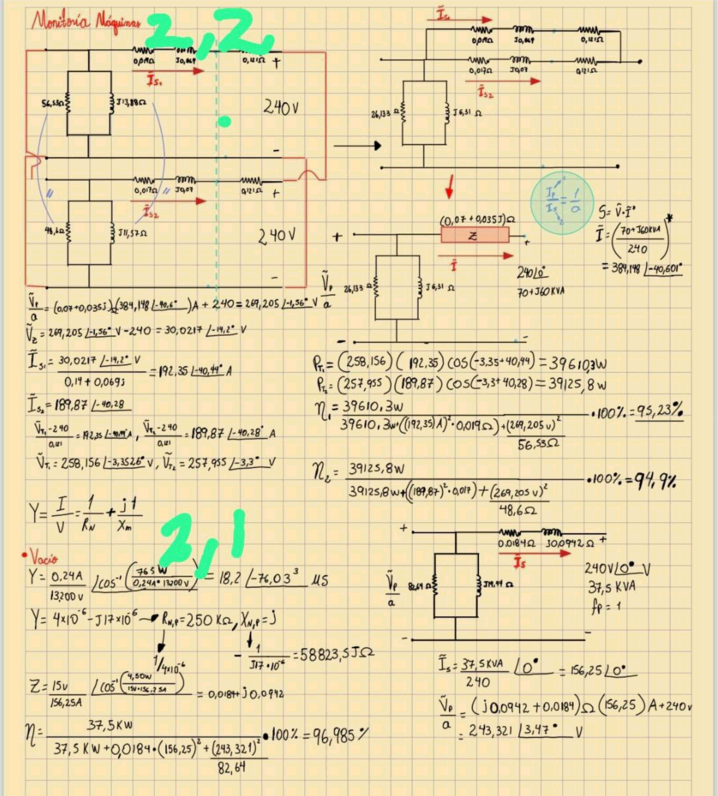 Monitoría Máquinas
2,2
0,019Ω J0,069 0,121Ω +
Ĩs₁
56,53Ω J13,88Ω
240V
-
0,017Ω J0,07 0,121Ω +
Ĩs₂
48,6Ω J11,57Ω
240V
-
Ĩs₁
0,019Ω J0,069 0,121Ω
0,017Ω J0,07 0,121Ω
Ĩs₂
26,133Ω J6,31Ω
Ip/Is = 1/a
(0,07+0,035J)Ω
+ Z +
Ĩ
Ṽp/a
26,133Ω J6,31Ω
240∠0°
70+J60KVA
-
S=Ṽ·I*
Ĩ=((70+J60KVA)/240)*
=384,148∠-40,601°
Ṽp/a=(0.07+0.035J)(384,148∠-40,6°)A+240=269,205∠-1,56° V
Ṽz=269,205∠-1,56° V-240=30,0217∠-14,2° V
Ĩs₁=30,0217∠-14,2° V/(0,14+0,069J)=192,35∠-40,44° A
Ĩs₂=189,87∠-40,28
(ṼT₁-240)/0,121=192,35∠-40,44° A, (ṼT₂-240)/0,121=189,87∠-40,28° A
ṼT₁=258,156∠-3,3526° V, ṼT₂=257,955∠-3,3° V
PT₁=(258,156)(192,35)COS(-3,35+40,44)=39610,3W
PT₂=(257,955)(189,87)COS(-3,3+40,28)=39125,8W
η₁=39610,3W/(39610,3W+((192,35)A)²·0,019Ω+(269,205V)²/56,53Ω)·100%=95,23%
η₂=39125,8W/(39125,8W+((189,87)²·0,017)+(269,205V)²/48,6Ω)·100%=94,9%
Y=I/V=1/RN+j1/Xm
2,1
• Vacío
Y=0,24A/13200V∠COS⁻¹(76,5W/(0,24A·13200V))=18,2∠-76,03° μS
Y=4x10⁻⁶-J17x10⁻⁶→RN,P=250KΩ, XN,P=j
1/4x10⁻⁶
-1/(J17·10⁻⁶)=58823,5JΩ
Z=15V/156,25A∠COS⁻¹(4,50W/(15V·156,25A))=0,0184+j0,0942
η=37,5KW/(37,5KW+0,0184·(156,25)²+(243,321)²/82,64)·100%=96,985%
+ 0,0184Ω J0,0942Ω +
Ĩs
Ṽp/a
82,64Ω J19,44Ω
240V∠0° V
37,5KVA
fp=1
- -
Ĩs=37,5KVA/240∠0°=156,25∠0°
Ṽp/a=(j0,0942+0,0184)Ω(156,25)A+240V
=243,321∠3,47° V